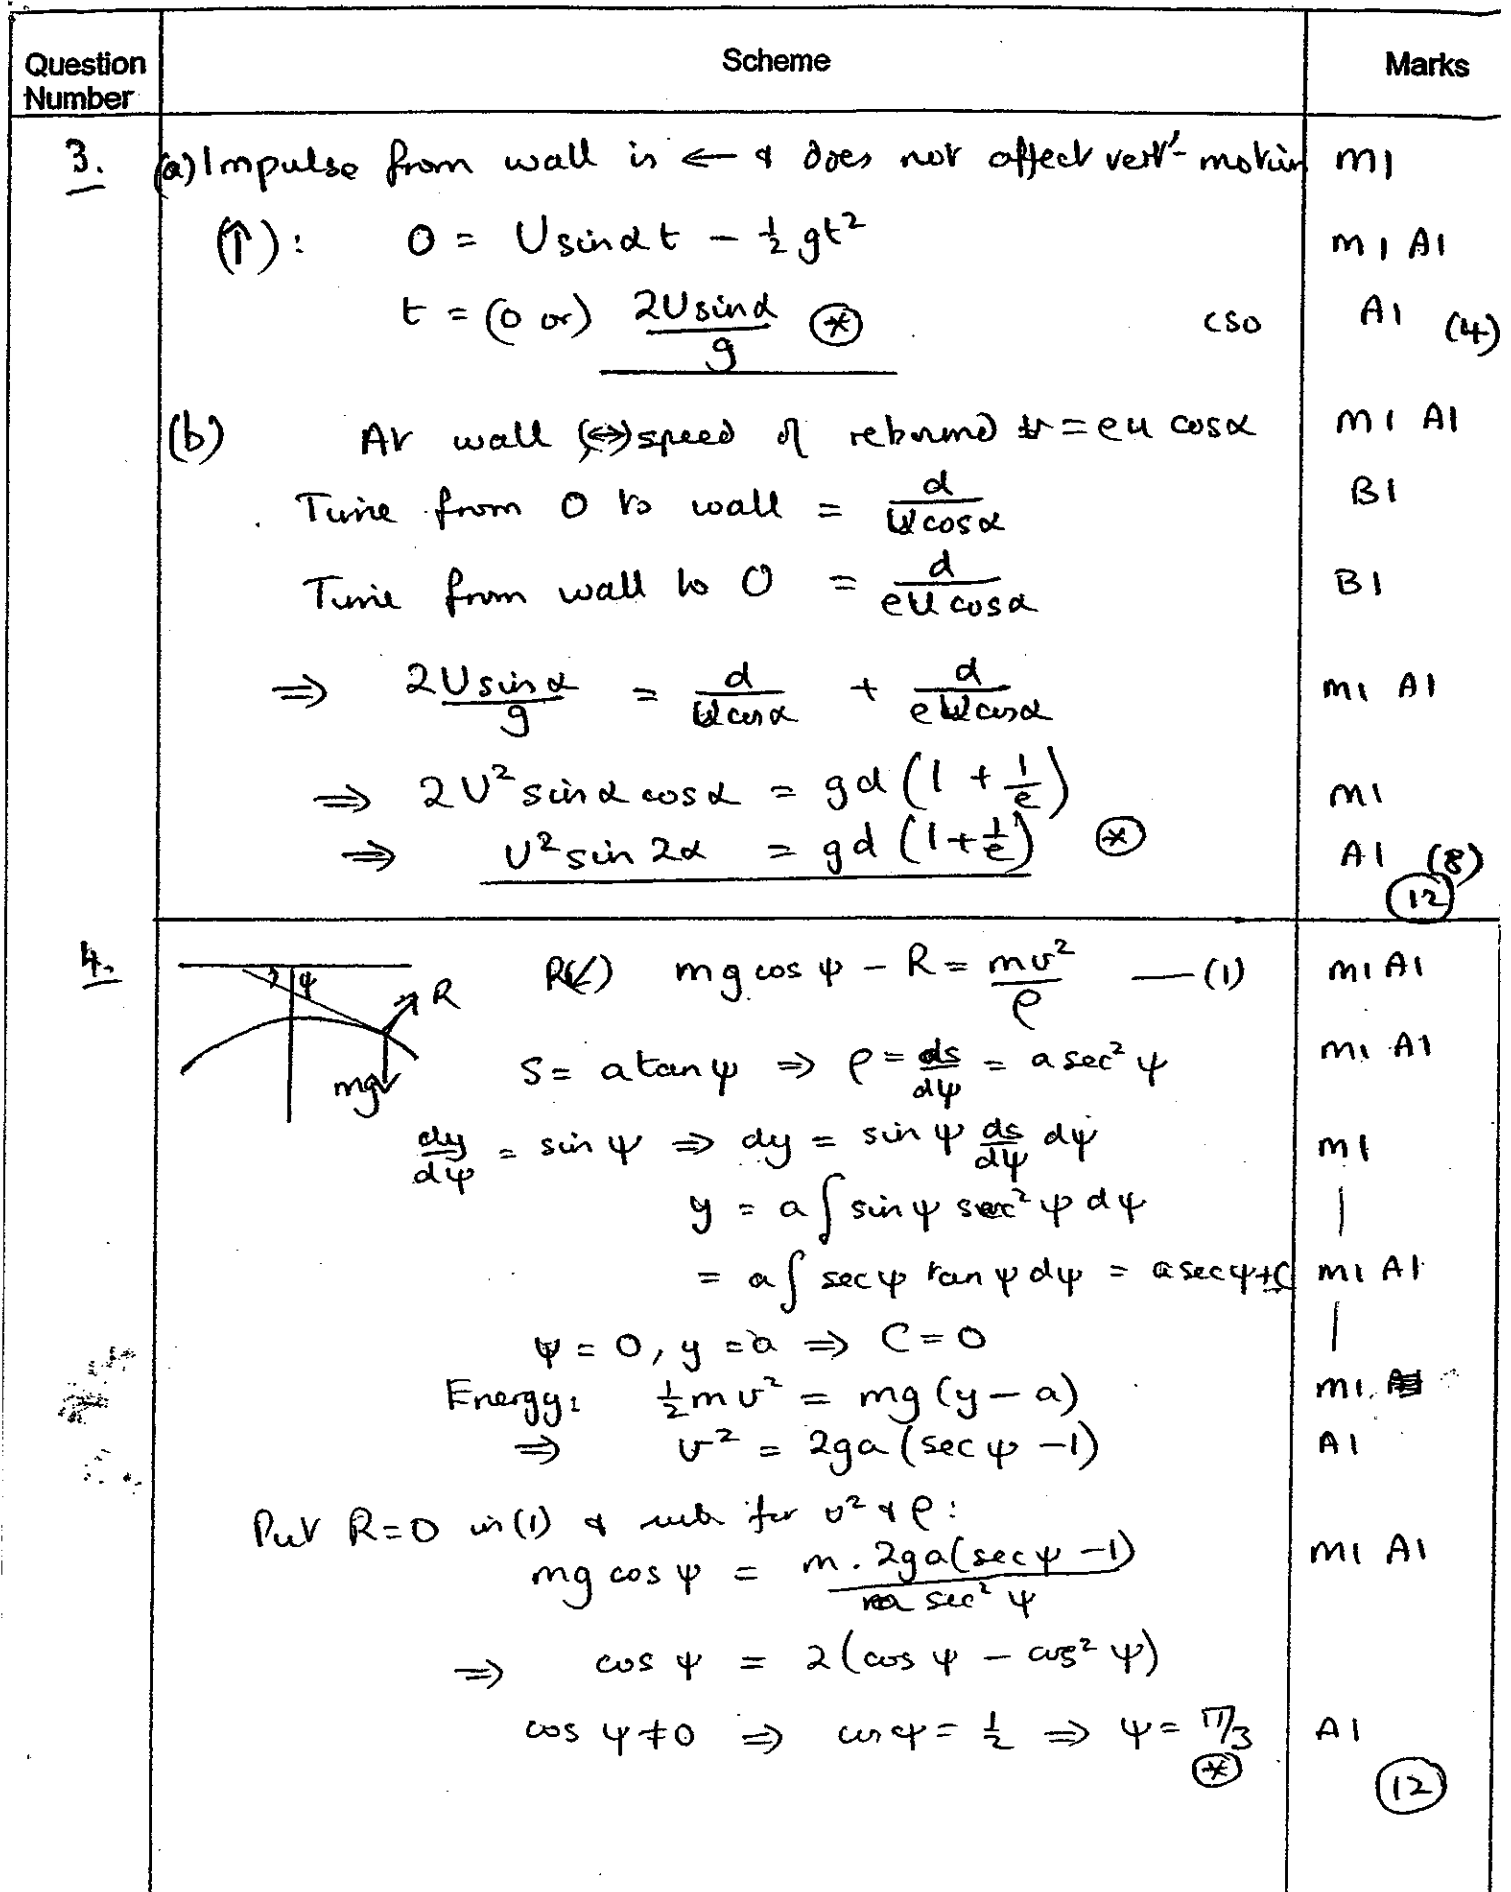 Question Number Scheme Marks
3. (a) Impulse from wall is ← & does not affect vert'- motion M1
(↑): 0 = U sin α t − ½ gt² M1 A1
t = (0 or) 2U sin α / g (*) cso A1 (4)
(b) At wall (↔) speed of rebound = eu cos α M1 A1
Time from O to wall = d / U cos α B1
Time from wall to O = d / eU cos α B1
⇒ 2U sin α / g = d / U cos α + d / e U cos α M1 A1
⇒ 2U² sin α cos α = gd (1 + 1/e) M1
⇒ U² sin 2α = gd (1 + 1/e) (*) A1 (8)
(12)
4. ψ R mg R(↙) mg cos ψ − R = mv² / ρ — (1) M1 A1
S = a tan ψ ⇒ ρ = ds/dψ = a sec² ψ M1 A1
dy/dψ = sin ψ ⇒ dy = sin ψ ds/dψ dψ M1
y = a ∫ sin ψ sec² ψ dψ
= a ∫ sec ψ tan ψ dψ = a sec ψ + C M1 A1
ψ = 0, y = a ⇒ C = 0
Energy: ½ m v² = mg (y − a) M1
⇒ v² = 2ga (sec ψ − 1) A1
Put R = 0 in (1) & sub for v² & ρ:
mg cos ψ = m . 2ga (sec ψ − 1) / a sec² ψ M1 A1
⇒ cos ψ = 2 (cos ψ − cos² ψ)
cos ψ ≠ 0 ⇒ cos ψ = ½ ⇒ ψ = π/3 A1
(*) (12)